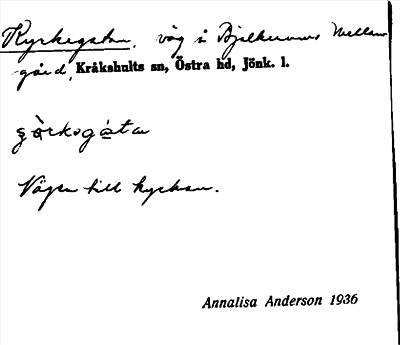 Kyrkegatan, väg i Bjälkerums Mellan
gård, Kråkshults sn, Östra hd, Jönk. l.
Vägen till kyrkan.
Annalisa Anderson 1936